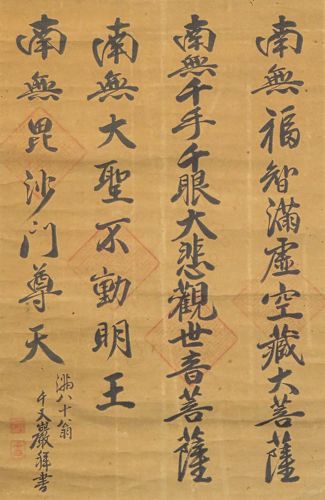 南無福智滿虛空藏大菩薩
南無千手千眼大悲觀世音菩薩
南無大聖不動明王
南無毘沙門尊天
滿八十翁
千丈巖拜書